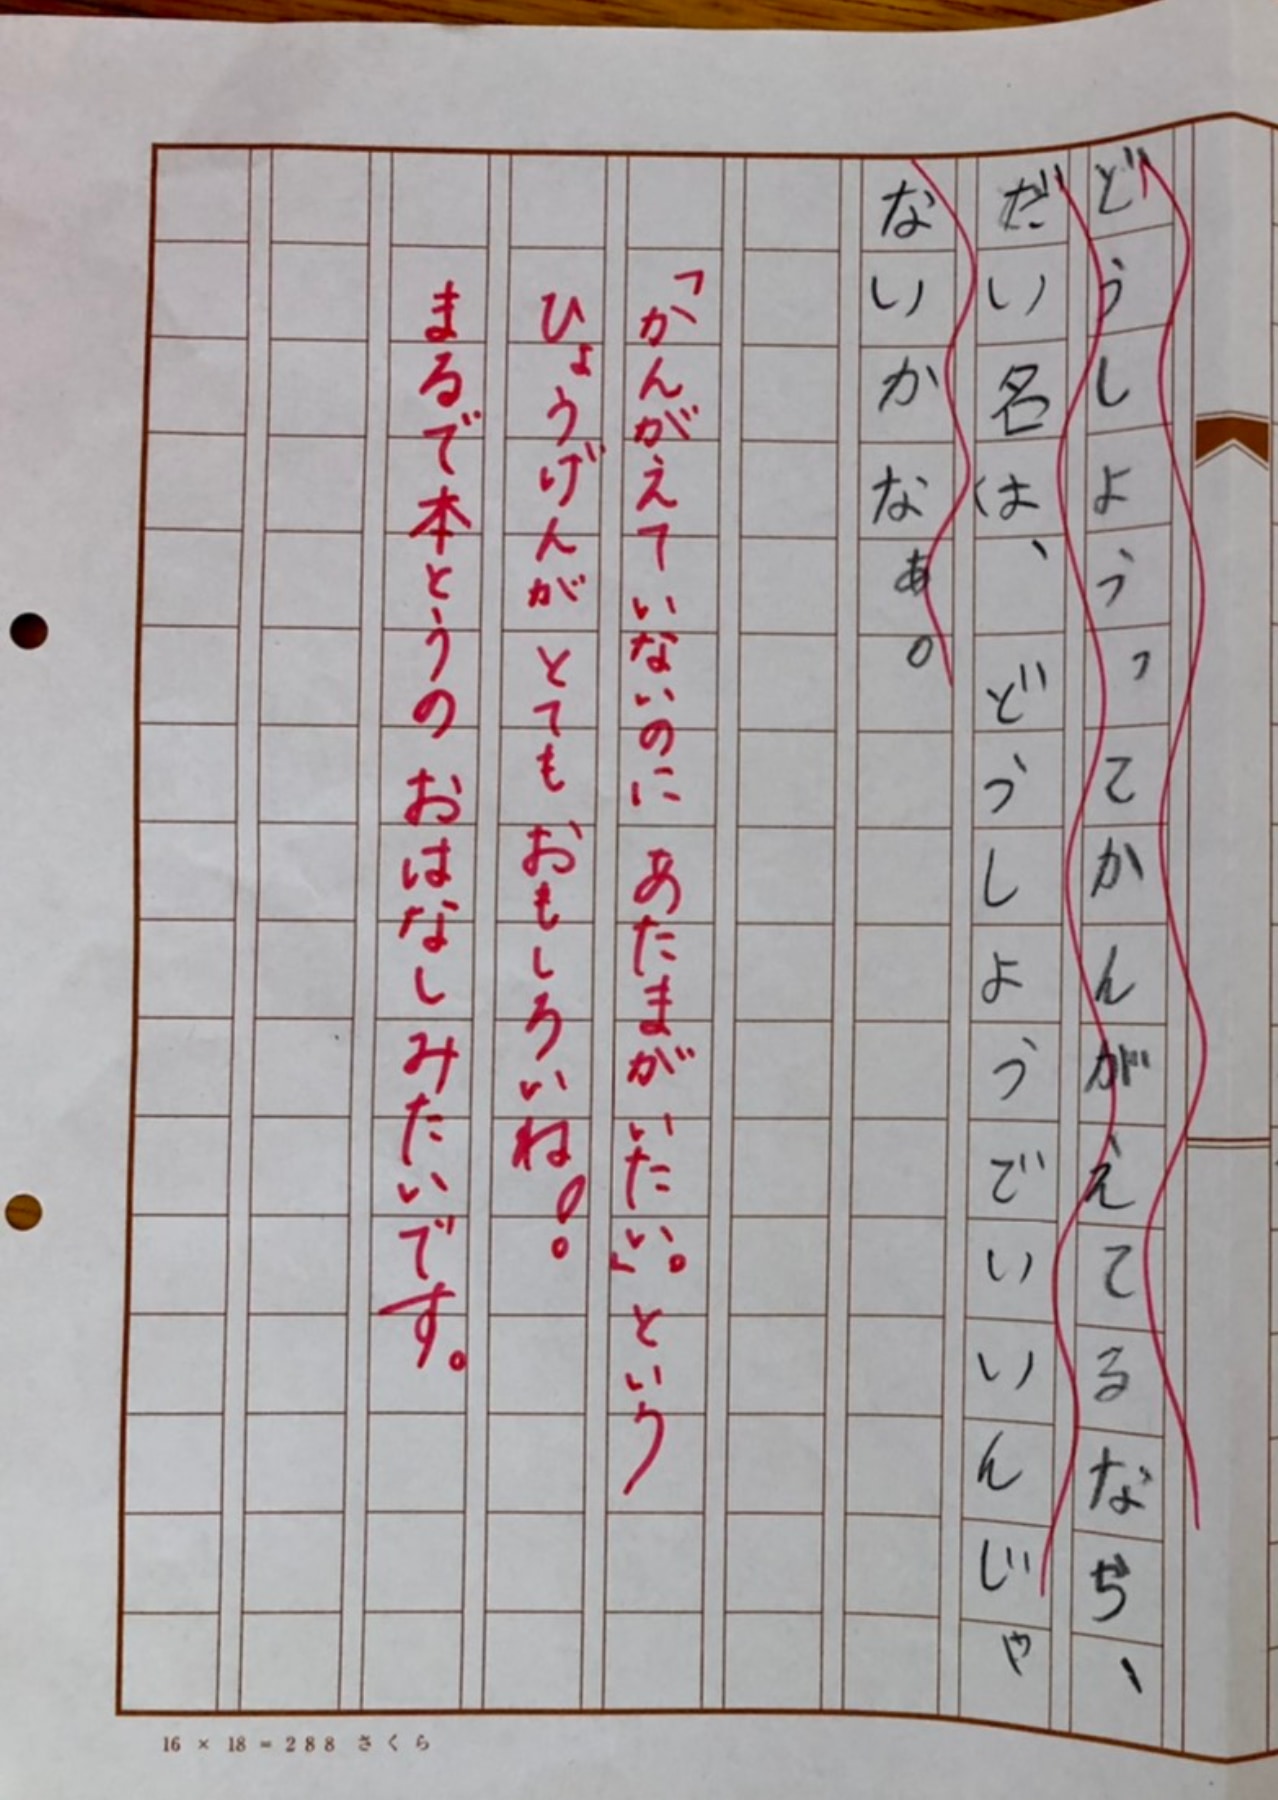 どうしようってかんがえてるなら、
だい名は、どうしようでいいんじゃ
ないかなぁ。
「かんがえていないのに あたまがいたい。」という
ひょうげんが とても おもしろいね!。
まるで本とうの おはなしみたいです。
16 × 18 = 288 さくら